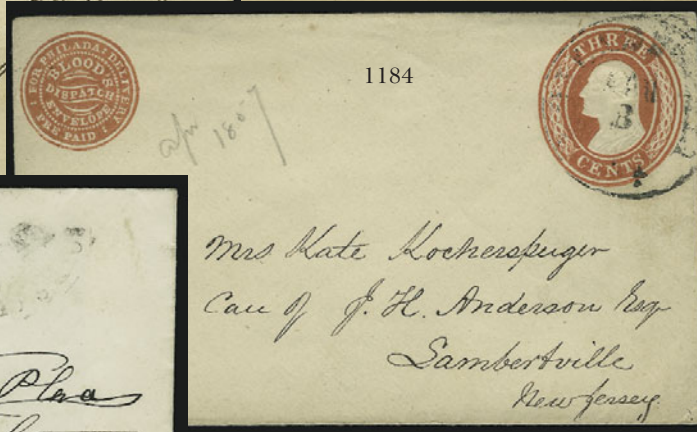 FOR PHILADA: DELIVERY
BLOOD'S
DISPATCH
ENVELOPE
PRE PAID
1184
THREE
CENTS
JAN
3
1857
Mrs Kate Kochersperger
Care of J. H. Anderson Esq
Lambertville
New Jersey